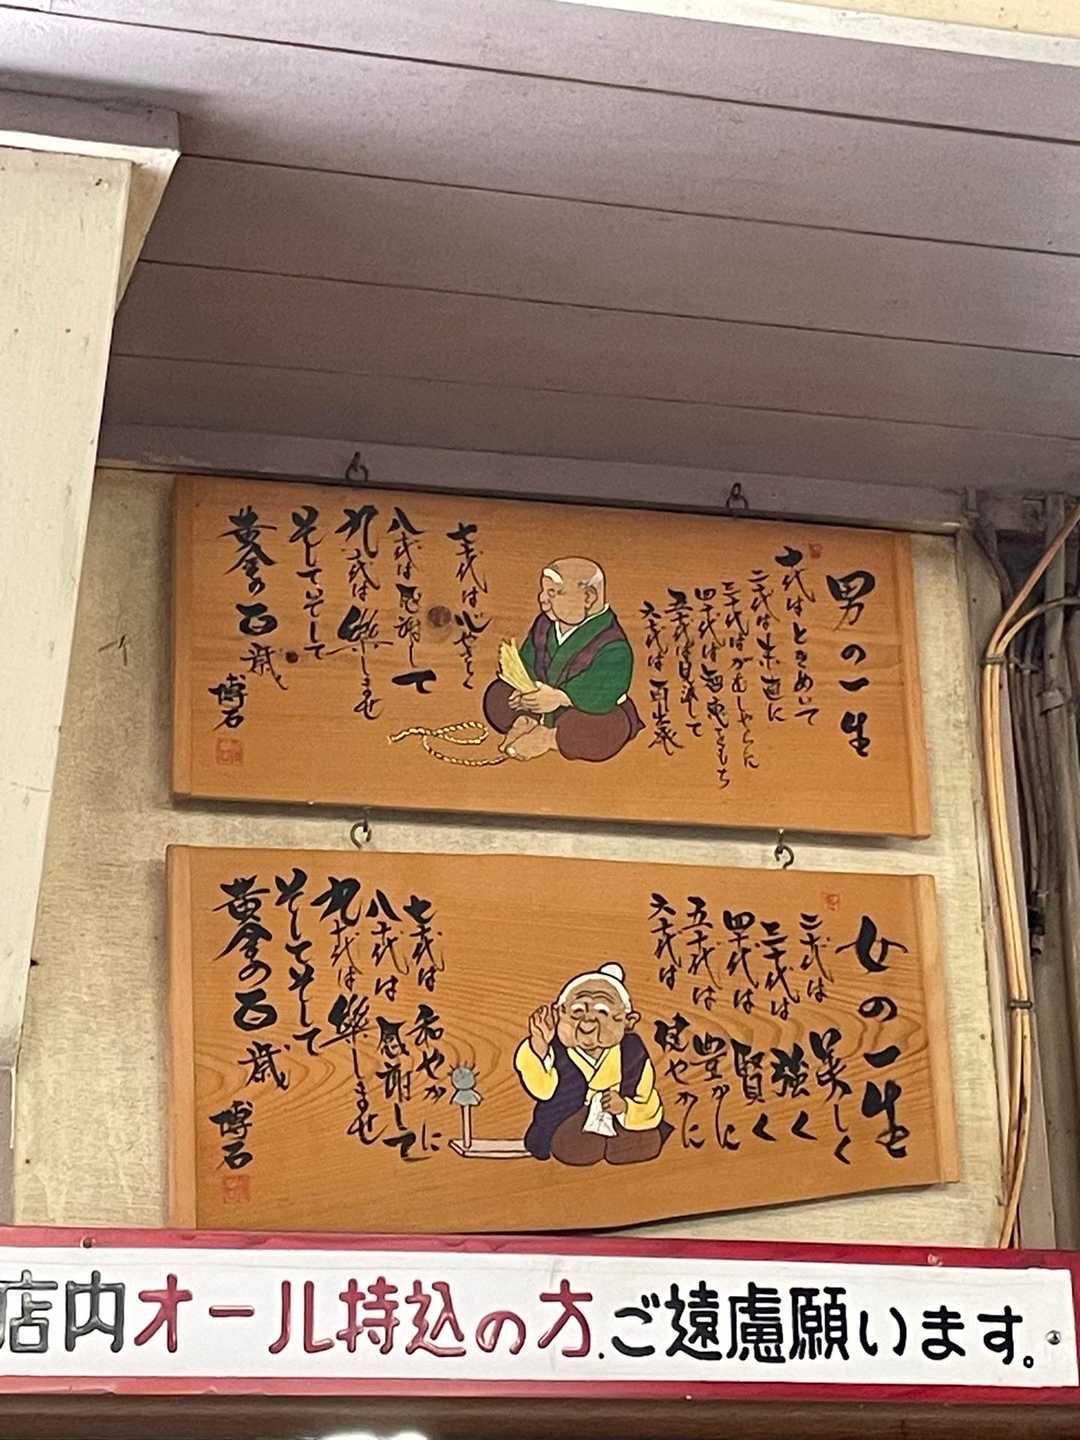 男の一生
十代はときめいて
二十代は素直に
三十代はがむしゃらに
四十代は知恵をもち
五十代は
六十代は
七十代は心やさしく
八十代は感謝して
九十代は楽しませ
そしてそして
黄金の百歳
博石
女の一生
二十代は美しく
三十代は強く
四十代は賢く
五十代は豊かに
六十代は健やかに
七十代は和やかに
八十代は感謝して
九十代は楽しませ
そしてそして
黄金の百歳
博石
店内オール持込の方、ご遠慮願います。